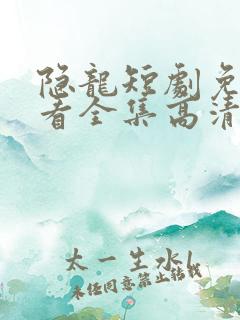 隐龍短劇免
看全集高清
太一生水
未经同意禁止转载